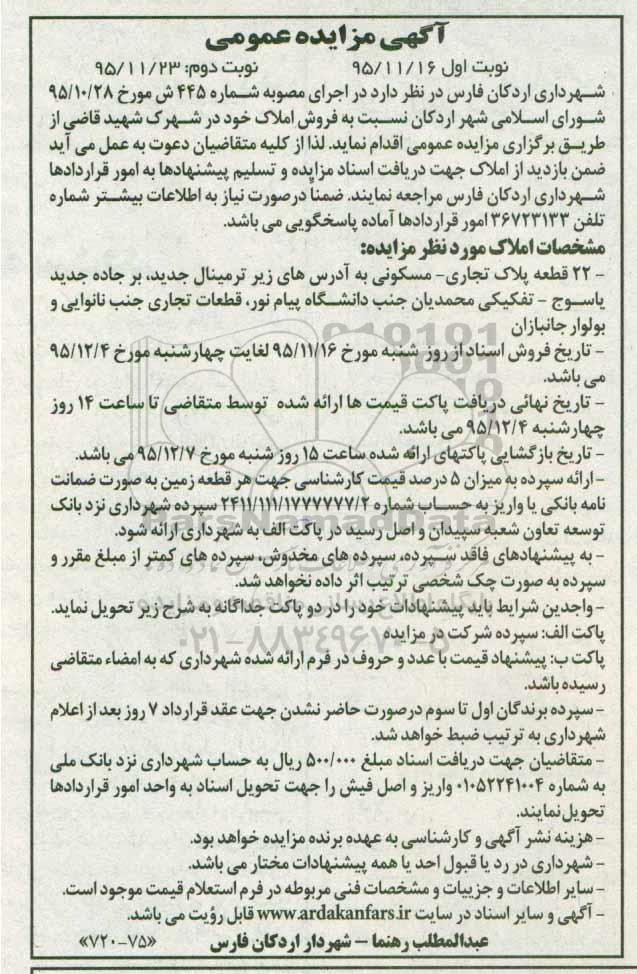 آگهی مزایده عمومی
نوبت اول ۹۵/۱۱/۱۶ نوبت دوم: ۹۵/۱۱/۲۳
شهرداری اردکان فارس در نظر دارد در اجرای مصوبه شماره ۴۴۵ ش مورخ ۹۵/۱۰/۲۸
شورای اسلامی شهر اردکان نسبت به فروش املاک خود در شهرک شهید قاضی از
طریق برگزاری مزایده عمومی اقدام نماید. لذا از کلیه متقاضیان دعوت به عمل می آید
ضمن بازدید از املاک جهت دریافت اسناد مزایده و تسلیم پیشنهادها به امور قراردادها
شهرداری اردکان فارس مراجعه نمایند. ضمناً درصورت نیاز به اطلاعات بیشتر شماره
تلفن ۳۶۷۲۳۱۳۳ امور قراردادها آماده پاسخگویی می باشد.
مشخصات املاک مورد نظر مزایده:
- ۲۲ قطعه پلاک تجاری- مسکونی به آدرس های زیر ترمینال جدید، بر جاده جدید
یاسوج - تفکیکی محمدیان جنب دانشگاه پیام نور، قطعات تجاری جنب نانوایی و
بولوار جانبازان
- تاریخ فروش اسناد از روز شنبه مورخ ۹۵/۱۱/۱۶ لغایت چهارشنبه مورخ ۹۵/۱۲/۴
می باشد.
- تاریخ نهائی دریافت پاکت قیمت ها ارائه شده توسط متقاضی تا ساعت ۱۴ روز
چهارشنبه ۹۵/۱۲/۴ می باشد.
- تاریخ بازگشایی پاکتهای ارائه شده ساعت ۱۵ روز شنبه مورخ ۹۵/۱۲/۷ می باشد.
- ارائه سپرده به میزان ۵ درصد قیمت کارشناسی جهت هر قطعه زمین به صورت ضمانت
نامه بانکی یا واریز به حساب شماره ۲۴۱۱/۱۱۱/۱۷۷۷۷۷۷/۲ سپرده شهرداری نزد بانک
توسعه تعاون شعبه سپیدان و اصل رسید در پاکت الف به شهرداری ارائه شود.
- به پیشنهادهای فاقد سپرده، سپرده های مخدوش، سپرده های کمتر از مبلغ مقرر و
سپرده به صورت چک شخصی ترتیب اثر داده نخواهد شد.
- واجدین شرایط باید پیشنهادات خود را در دو پاکت جداگانه به شرح زیر تحویل نماید.
پاکت الف: سپرده شرکت در مزایده
پاکت ب: پیشنهاد قیمت با عدد و حروف در فرم ارائه شده شهرداری که به امضاء متقاضی
رسیده باشد.
- سپرده برندگان اول تا سوم درصورت حاضر نشدن جهت عقد قرارداد ۷ روز بعد از اعلام
شهرداری به ترتیب ضبط خواهد شد.
- متقاضیان جهت دریافت اسناد مبلغ ۵۰۰/۰۰۰ ریال به حساب شهرداری نزد بانک ملی
به شماره ۰۱۰۵۲۲۴۱۰۰۴ واریز و اصل فیش را جهت تحویل اسناد به واحد امور قراردادها
تحویل نمایند.
- هزینه نشر آگهی و کارشناسی به عهده برنده مزایده خواهد بود.
- شهرداری در رد یا قبول احد یا همه پیشنهادات مختار می باشد.
- سایر اطلاعات و جزییات و مشخصات فنی مربوطه در فرم استعلام قیمت موجود است.
- آگهی و سایر اسناد در سایت www.ardakanfars.ir قابل رؤیت می باشد.
عبدالمطلب رهنما - شهردار اردکان فارس «۷۲۰-۷۵»